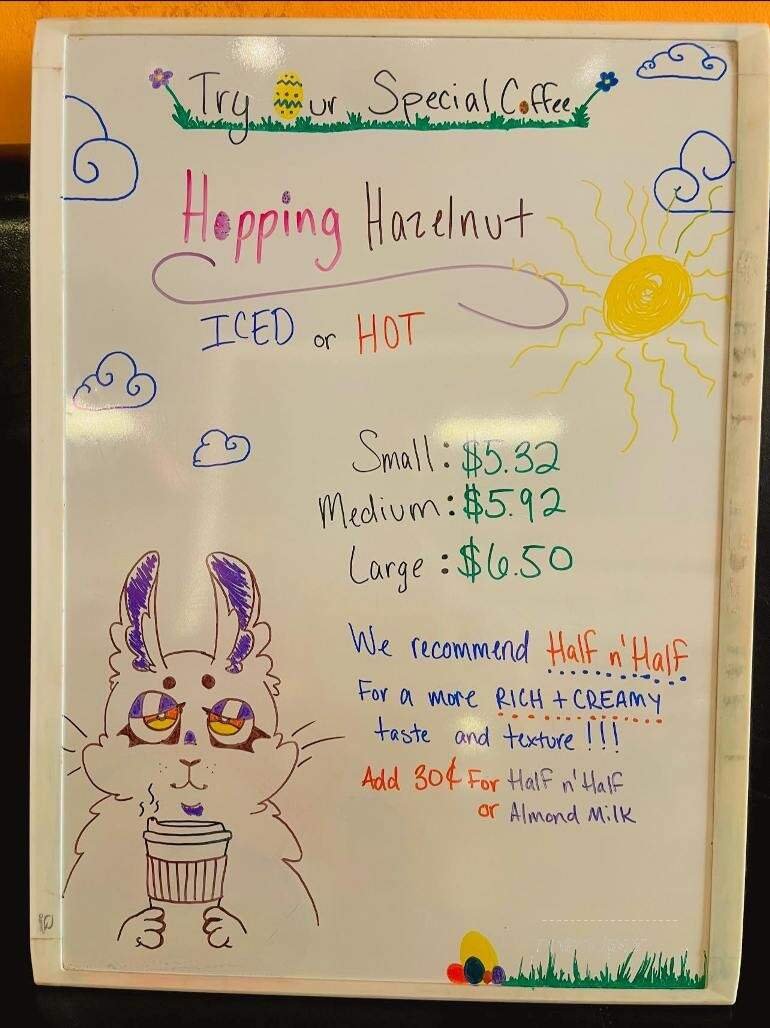 Try Our Special Coffee
Hopping Hazelnut
ICED or HOT
Small: $5.32
Medium: $5.92
Large: $6.50
We recommend Half n' Half
For a more RICH + CREAMY
taste and texture!!!
Add 30¢ For Half n' Half
or Almond Milk